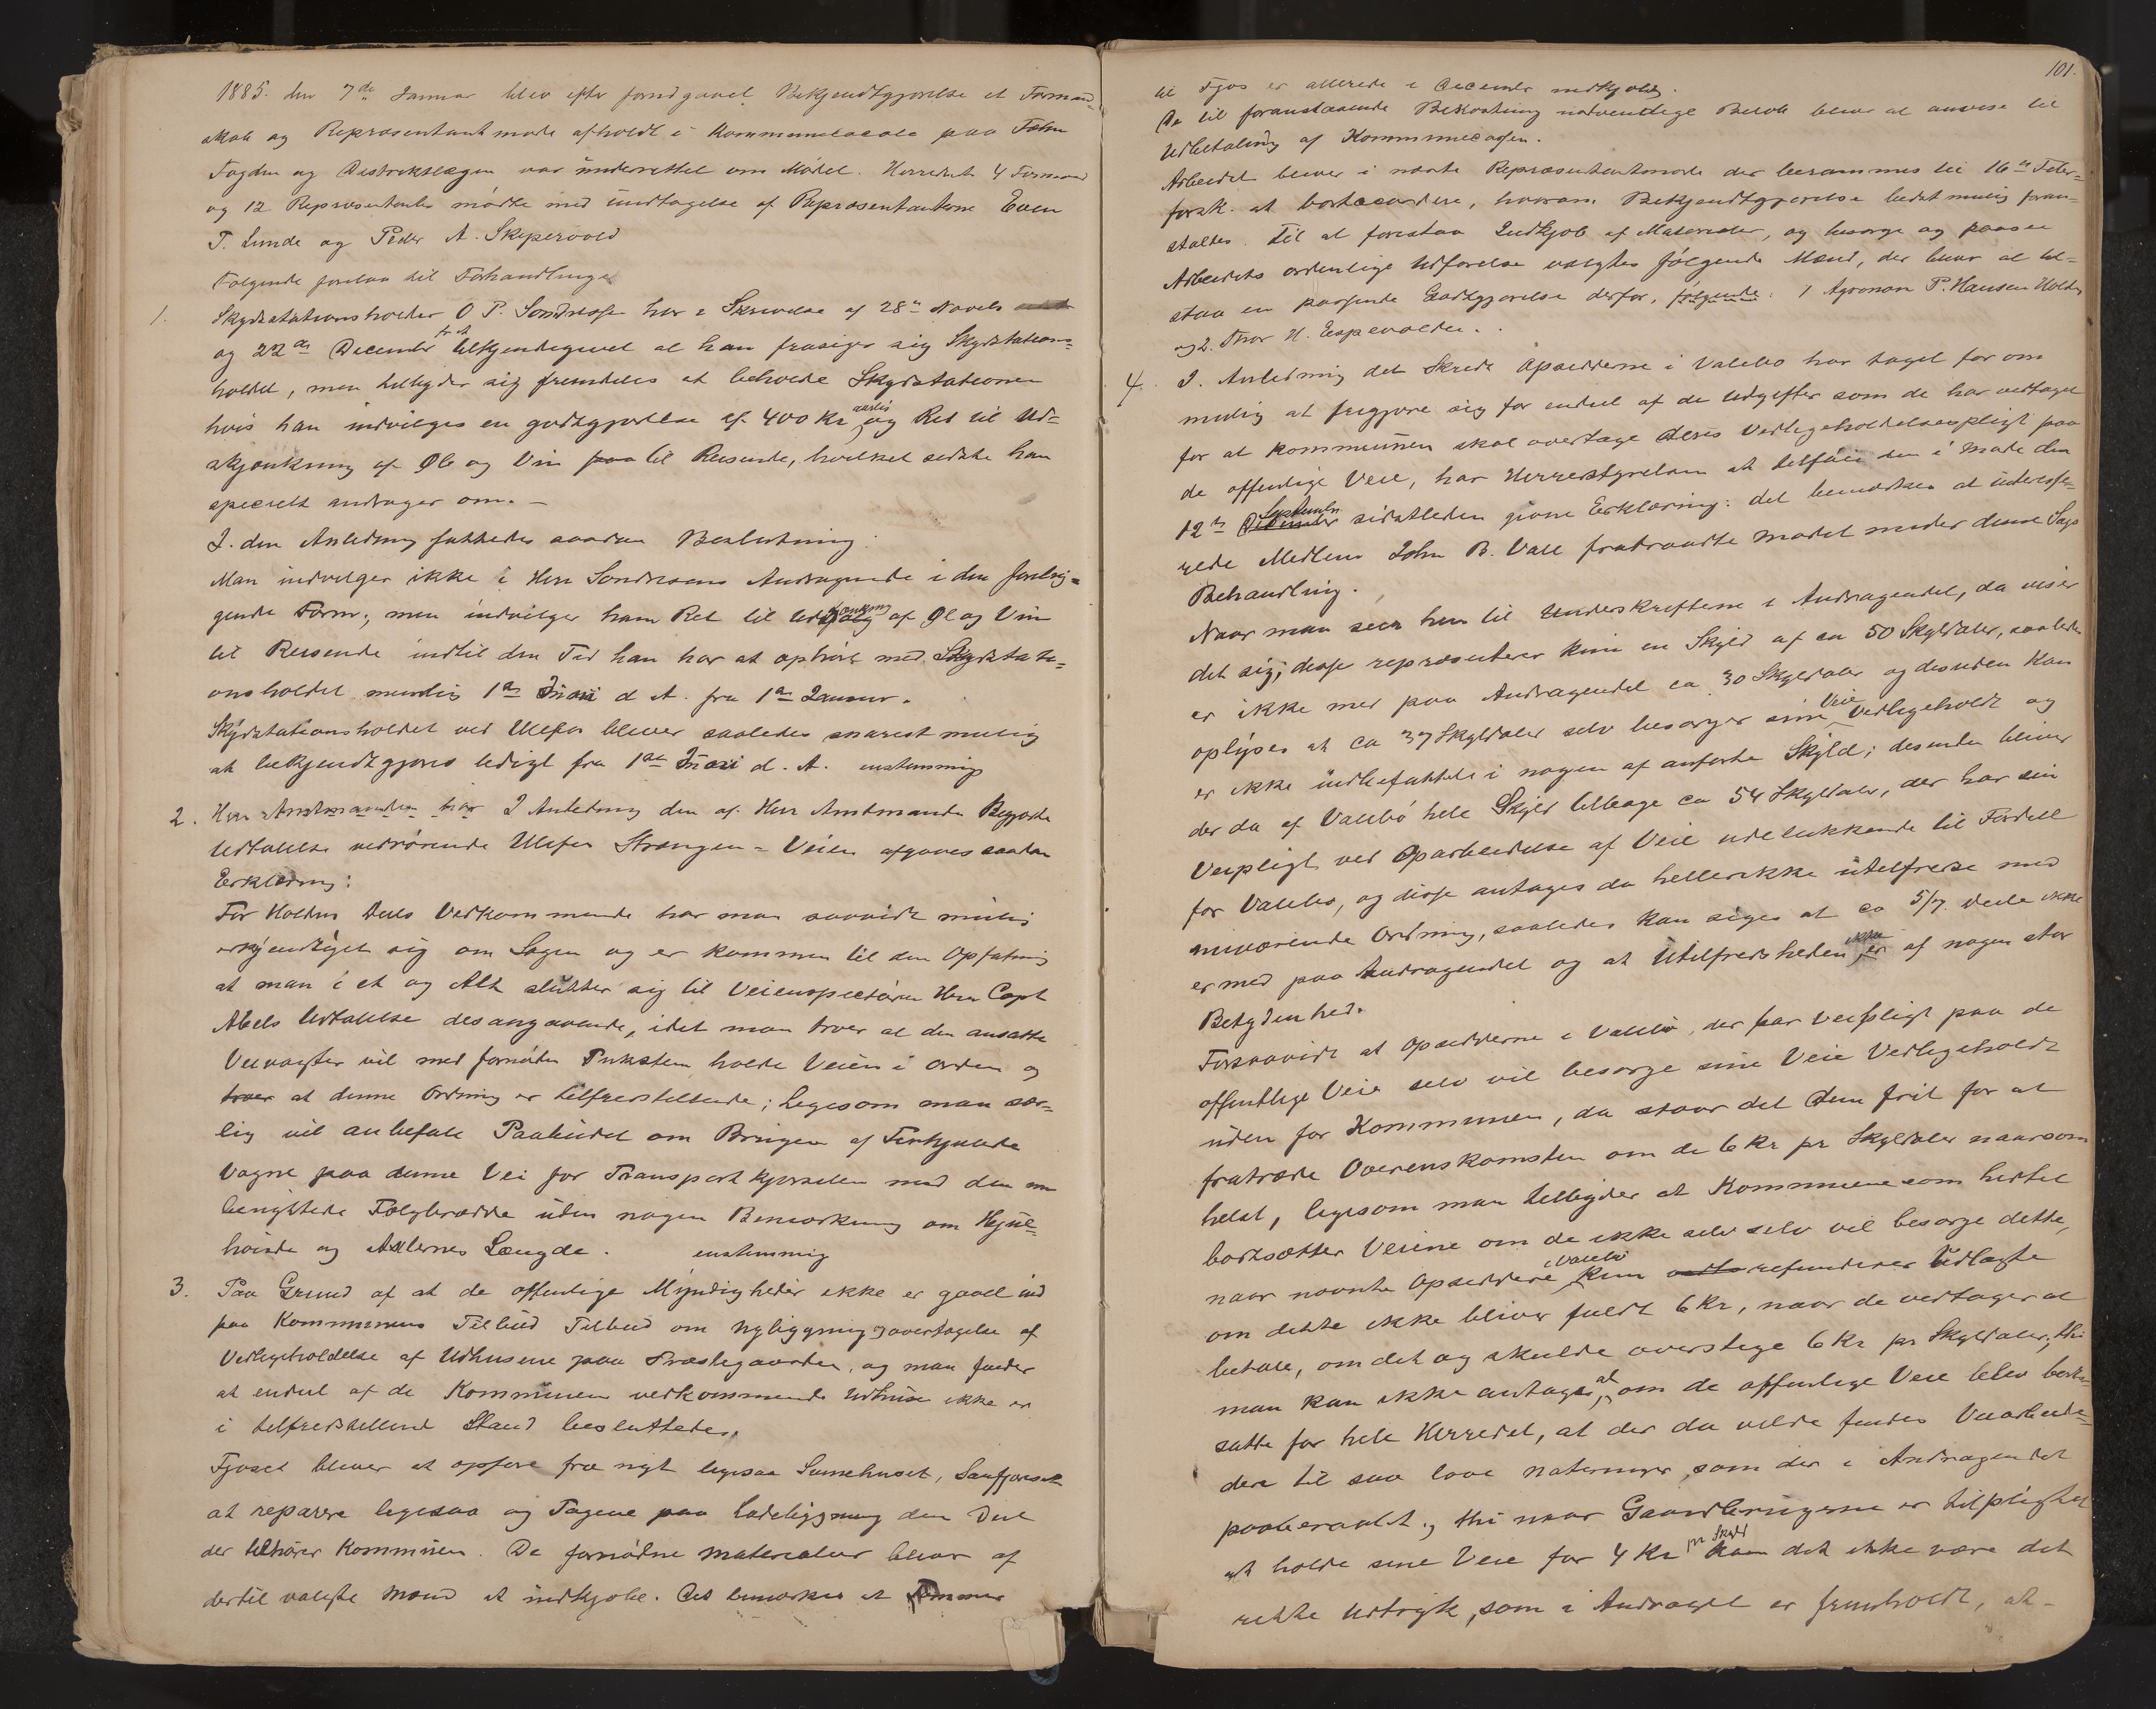 1885. den 7de Januar blev efter forudgaael Bekjendtgjørelse et Formand-
skab og Repræsentantmøde afholdt i Kommunelocale paa Folin
Fogden og Distrikslægen var underrettet om Mødet. Herredets 4 Formænd
og 12 Repræsentanter mødte med undtagelse af Repræsentanterne Even
T. Lunde og Peder A. Skipervold
Følgende forelaa til Forhandling
1. Skydsstationsholder O P. Sondresen har i Skrivelse af 28de Novele
og 22de December tilkjendegivet at han frasiger sig Skydsstations-
holdet, men tilbyder sig fremdeles at beholde Skydsstationen
hvis han indvilges en godtgjørelse af 400 Kr aarlig og Ret til Ud-
skjænkning af Øl og Vin paa til Reisende, hvilket sidste han
specielt andrager om. —
I den Anledning fattedes saadan Beslutning:
Man indvilger ikke i Herr Sondresens Andragende i den forelig-
gende Form; men indvilger ham Ret til Udskjænkning af Øl og Vin
til Reisende indtil den Tid han har at ophøre med Skydsstati-
onsholdet nemlig 1ste Mai d A. fra 1ste Januar.
Skydsstationsholdet ved Ulefos bliver saaledes snarest mulig
at bekjendtgjøres ledigt fra 1ste Mai d. A. enstemmig
2. Herr Amtmanden har I Anledning den af Herr Amtmanden Begjærte
Udtalelse vedrørende Ulefos Strengen = Veien afgaves saadan
Erklæring:
For Holdens Dels Vedkommende har man saavidt mulig
erkyendiget sig om Sagen og er kommen til den Opfatning
at man i et og Alt slutter sig til Veiinspectøren Herr Capt
Abels Udtalelse desangaaende, idet man troer at den ansatte
Veivogter vil med fornøden Puksten holde Veien i Orden og
troer at denne Ordning er tilfredstillende; ligesom man sær-
lig vil anbefale Paabudet om Brugen af Firhjulede
Vogne paa denne Vei for Transportkjørselen med den nu
benyttede Fælgbredde uden nogen Bemærkning om Hjul-
høide og Axlernes Længde. enstemmig
3. Paa Grund af at de offentlige Myndigheder ikke er gaaet ind
paa Kommunens Tilbud Tilbud om Nybygning og overtagelse af
Vedligeholdelse af Udhusene paa Præstegaarden, og man finder
at endel af de Kommunen vedkommende Udhuse ikke er
i tilfredstillende Stand besluttedes.
Fjøset bliver at opføre fra nyt ligesaa Svinehuset, Saufjøset
at reparere ligesaa og Tagene paa Ladebygning den Deel
der tilhører Kommunen. De fornødne Materialier bliver af
dertil valgte Mænd at indkjøbe. Det bemærkes at Tømmer
101.
til Fjøs er allerede i December indkjøbt.
De til foranstaaende Bekostning nødvendige Beløb bliver at anvise til
Udbetaling af Kommunecassen.
Arbeidet bliver i næste Repræsentantmøde der berammes til 16de Febr-
forsk. at bortaccordere, hvorom Bekjendtgjørelse bedst mulig foran-
staltes. Til at forestaa Indkjøb af Materialer, og besørge og paase
Arbeidets ordentlige Udførelse valgtes følgende Mænd, der bliver at til-
staa en passende Godtgjørelse derfor, følgende: 1 Agronom P. Hansen Holden
og 2. Thor H. Eespevolden.
4. I Anledning det Skridt Opsidderne i Valebø har taget for om
mulig at frigjøre sig for endel af de Udgifter som de har vedtaget
for at Kommunen skal overtage deres Vedligeholdelsespligt paa
de offentlige Veie, har Herredstyrelsen at tilføie den i Møde den
12te September sidstleden givne Erklæring: det bemærkes at interesse-
rede Medlem John B. Vale fratraadte Mødet under denne Sags
Behandling.
Naar man seer hen til Underskrifterne i Andragendet, da viser
det sig, disse repræsenterer kun en Skyld af ca 50 Skyldaler, saaledes
er ikke med paa Andragendet ca 30 Skyldaler og desuden kan
oplyses at ca 37 Skyldaler selv besørger sine Veie Vedligeholdt og
er ikke indbefattede i nogen af anførte Skyld; desuden bliver
der da af Valebø hele Skyld tilbage ca 54 Skyldaler, der har sin
Veipligt ved Oparbeidelse af Veie udelukkende til Fordeel
for Valebø, og disse antages da hellerikke utilfredse med
nuværende Ordning, saaledes kan siges at ca 5/7. dele ikke
er med paa Andragendet og at Utilfredsheden ikke er af nogen stor
Betydenhed.
Forsaavidt at Opsidderne i Valebø, der har Veipligt paa de
offentlige Veie selv vil besørge sine Veie Vedligeholdt
uden for Kommunen, da staar det dem frit for at
fratræde Overenskomsten om de 6 Kr pr Skyldaler naarsom
helst, ligesom man tilbyder at Kommunen som hertil
bortsætter Veiene om de ikke selv selv vil besørge dette,
naar nævnte Opsiddere i Valebø kun refunderer Udlagte
om dette ikke bliver fuldt 6 Kr, naar de vedtager at
betale, om det og skulde overstige 6 Kr pr Skyldaler; thi
man kan ikke antage, at om de offentlige Veie blev bort-
satte for hele Herredet, at der da vilde findes Veiarbei-
dere til saa lave Notninger, som der i Andragendet
paaberaabt, thi naar Gaardbrugerne er tilpligtet
at holde sine Veie for 4 Kr pr Skyld kan det ikke være det
rette Udtryk, som i Andraget er fremholdt, at-